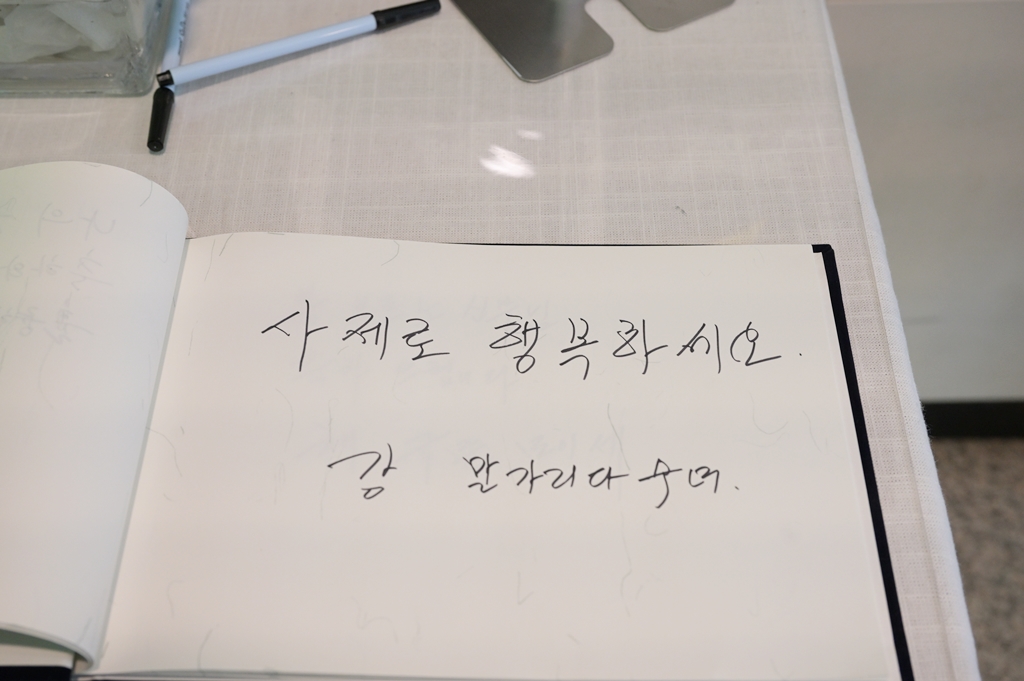 사제로 행복하시오.
강 말가리다 수녀.